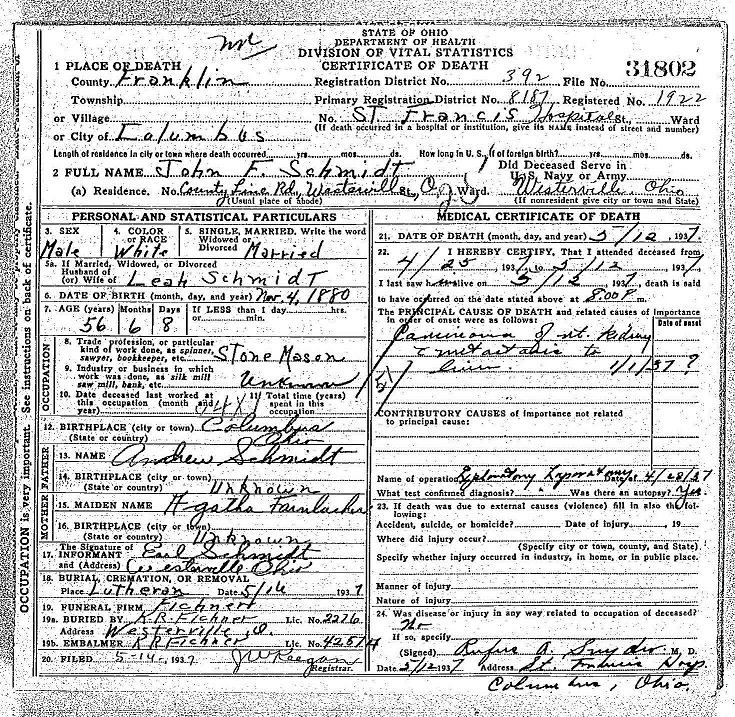 STATE OF OHIO
DEPARTMENT OF HEALTH
DIVISION OF VITAL STATISTICS
CERTIFICATE OF DEATH
31802
1 PLACE OF DEATH
County Franklin
Registration District No. 392 File No.
Township
Primary Registration District No. 8187 Registered No. 1922
or Village
No. St Francis Hospital St., Ward
or City of Columbus
(If death occurred in a hospital or institution, give its NAME instead of street and number)
Length of residence in city or town where death occurred yrs. mos. ds. How long in U. S., if of foreign birth? yrs. mos. ds.
2 FULL NAME John F. Schmidt
Did Deceased Serve in U. S. Navy or Army
(a) Residence. No. County Line Rd, Westerville St., O. Ward. Westerville, Ohio
(Usual place of abode) (If nonresident give city or town and State)
PERSONAL AND STATISTICAL PARTICULARS
3. SEX Male
4. COLOR or RACE White
5. SINGLE, MARRIED, Write the word Widowed or Divorced Married
5a. If Married, Widowed, or Divorced
Husband of
(or) Wife of Leah Schmidt
6. DATE OF BIRTH (month, day, and year) Nov. 4, 1880
7. AGE (years) 56 Months 6 Days 8 If LESS than 1 day hrs. or min.
OCCUPATION
8. Trade, profession, or particular kind of work done, as spinner, sawyer, bookkeeper, etc. Stone Mason
9. Industry or business in which work was done, as silk mill saw mill, bank, etc. Unknown
10. Date deceased last worked at this occupation (month and year)
11. Total time (years) spent in this occupation
12. BIRTHPLACE (city or town) Columbus
(State or country) Ohio
FATHER
13. NAME Andrew Schmidt
14. BIRTHPLACE (city or town)
(State or country) Unknown
MOTHER
15. MAIDEN NAME Agatha
16. BIRTHPLACE (city or town)
(State or country) Unknown
The Signature of
17. INFORMANT Earl Schmidt
and (Address) Westerville Ohio
18. BURIAL, CREMATION, OR REMOVAL
Place Lutheran Date 5/14 1937
19. FUNERAL FIRM Fichnert
19a. BURIED BY K.R. Fichner Lic. No. 2276
Address Westerville O.
19b. EMBALMER K R Fichner Lic. No. 4257A
20. FILED 5-14-1937 J W Keegan Registrar.
MEDICAL CERTIFICATE OF DEATH
21. DATE OF DEATH (month, day, and year) 5/12, 1937
22. I HEREBY CERTIFY, That I attended deceased from
4/25 1937, to 5/12, 1937
I last saw h alive on 5/12 1937, death is said
to have occurred on the date stated above at 8:00 P. m.
The PRINCIPAL CAUSE OF DEATH and related causes of importance in order of onset were as follows:
Date of onset
Carcinoma of rt. Kidney
c metastasis to
liver 1/1/37 ?
CONTRIBUTORY CAUSES of importance not related to principal cause:
Name of operation Exploratory Laparotomy Date of 4/28/37
What test confirmed diagnosis? Was there an autopsy? Yes.
23. If death was due to external causes (violence) fill in also the following:
Accident, suicide, or homicide? Date of injury , 19
Where did injury occur?
(Specify city or town, county, and State)
Specify whether injury occurred in industry, in home, or in public place.
Manner of injury
Nature of injury
24. Was disease or injury in any way related to occupation of deceased?
No
If so, specify
(Signed) Rufus A. Snyder M. D.
Date 5/12 1937 Address St. Francis Hosp.
Columbus, Ohio
OCCUPATION is very important. See instructions on back of certificate.